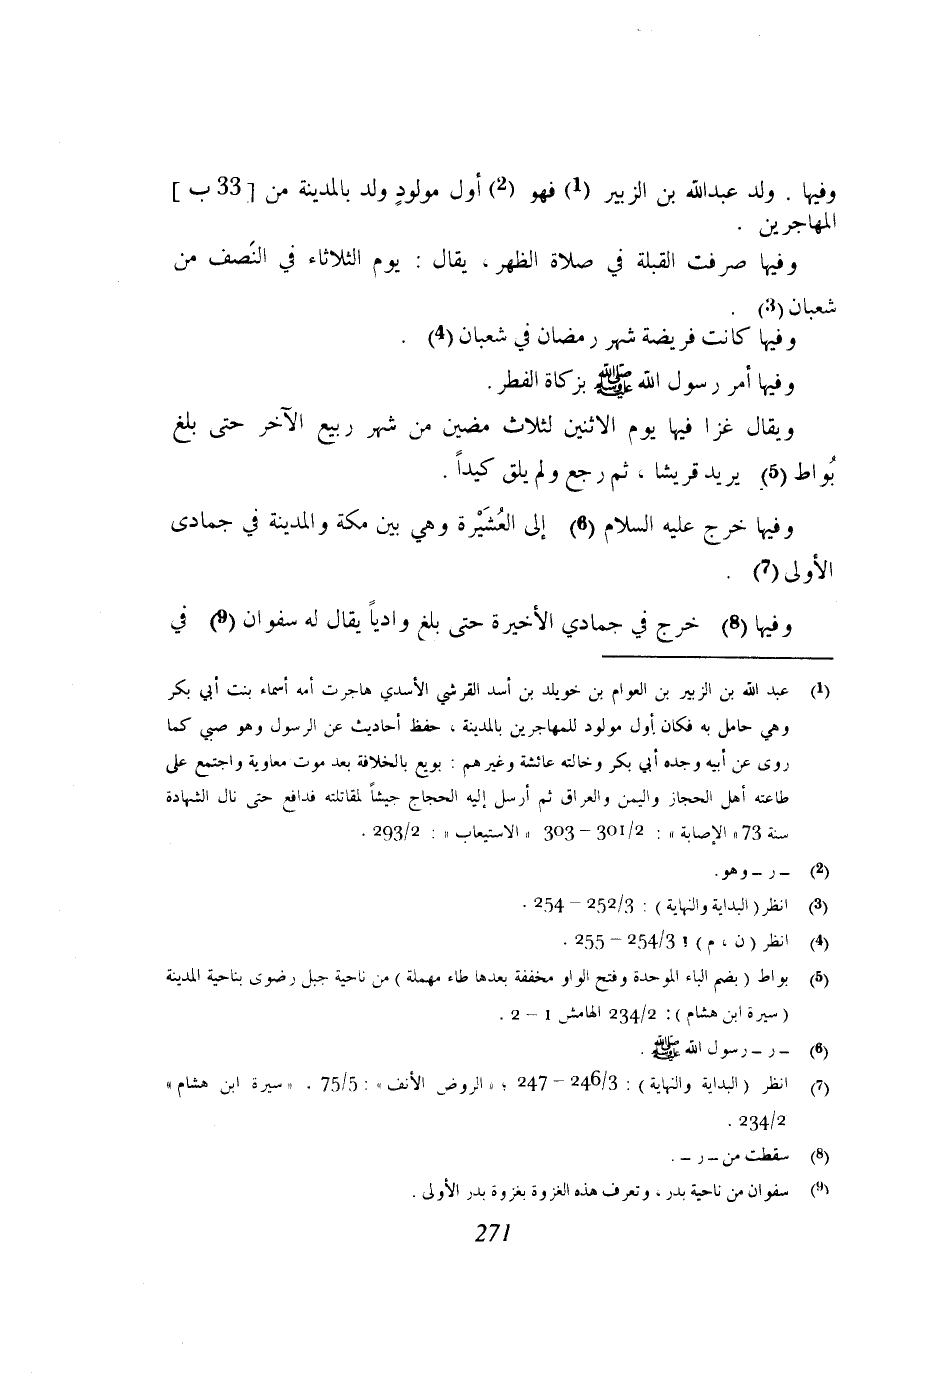 وفيها . ولد عبدالله بن الزبير (1) فهو (2) أول مولودٍ ولد بالمدينة من [ 33 ب ]
المهاجرين .
وفيها صرفت القبلة في صلاة الظهر ، يقال : يوم الثلاثاء في النَصف من
شعبان (3) .
وفيها كانت فريضة شهر رمضان في شعبان (4) .
وفيها أمر رسول الله ﷺ بزكاة الفطر .
ويقال غزا فيها يوم الاثنين لثلاث مضين من شهر ربيع الآخر حتى بلغ
بُواط (5) يريد قريشا ، ثم رجع ولم يلق كيداً .
وفيها خرج عليه السلام (6) إلى العُشَيْرة وهي بين مكة والمدينة في جمادى
الأولى (7) .
وفيها (8) خرج في جمادي الأخيرة حتى بلغ وادياً يقال له سفوان (9) في
(1) عبد الله بن الزبير بن العوام بن خويلد بن أسد القرشي الأسدي هاجرت أمه أسماء بنت أبي بكر
وهي حامل به فكان أول مولود للمهاجرين بالمدينة ، حفظ أحاديث عن الرسول وهو صبي كما
روى عن أبيه وجده أبي بكر وخالته عائشة وغيرهم : بويع بالخلافة بعد موت معاوية واجتمع على
طاعته أهل الحجاز واليمن والعراق ثم أرسل إليه الحجاج جيشاً لمقاتلته فدافع حتى نال الشهادة
سنة 73 « الإصابة » : 301/2 – 303 « الاستيعاب » : 293/2 .
(2) – ر – وهو.
(3) انظر ( البداية والنهاية ) : 252/3 – 254 .
(4) انظر ( ن ، م ) ! 254/3 – 255 .
(5) بواط ( بضم الباء الموحدة وفتح الواو مخففة بعدها طاء مهملة ) من ناحية جبل رضوى بناحية المدينة
( سيرة ابن هشام ) : 234/2 الهامش 1 – 2 .
(6) – ر – رسول الله ﷺ .
(7) انظر ( البداية والنهاية ) : 246/3 – 247 ؛ « الروض الأنف » : 75/5 . « سيرة ابن هشام »
234/2 .
(8) سقطت من – ر – .
(9) سفوان من ناحية بدر ، وتعرف هذه الغزوة بغزوة بدر الأولى .
271